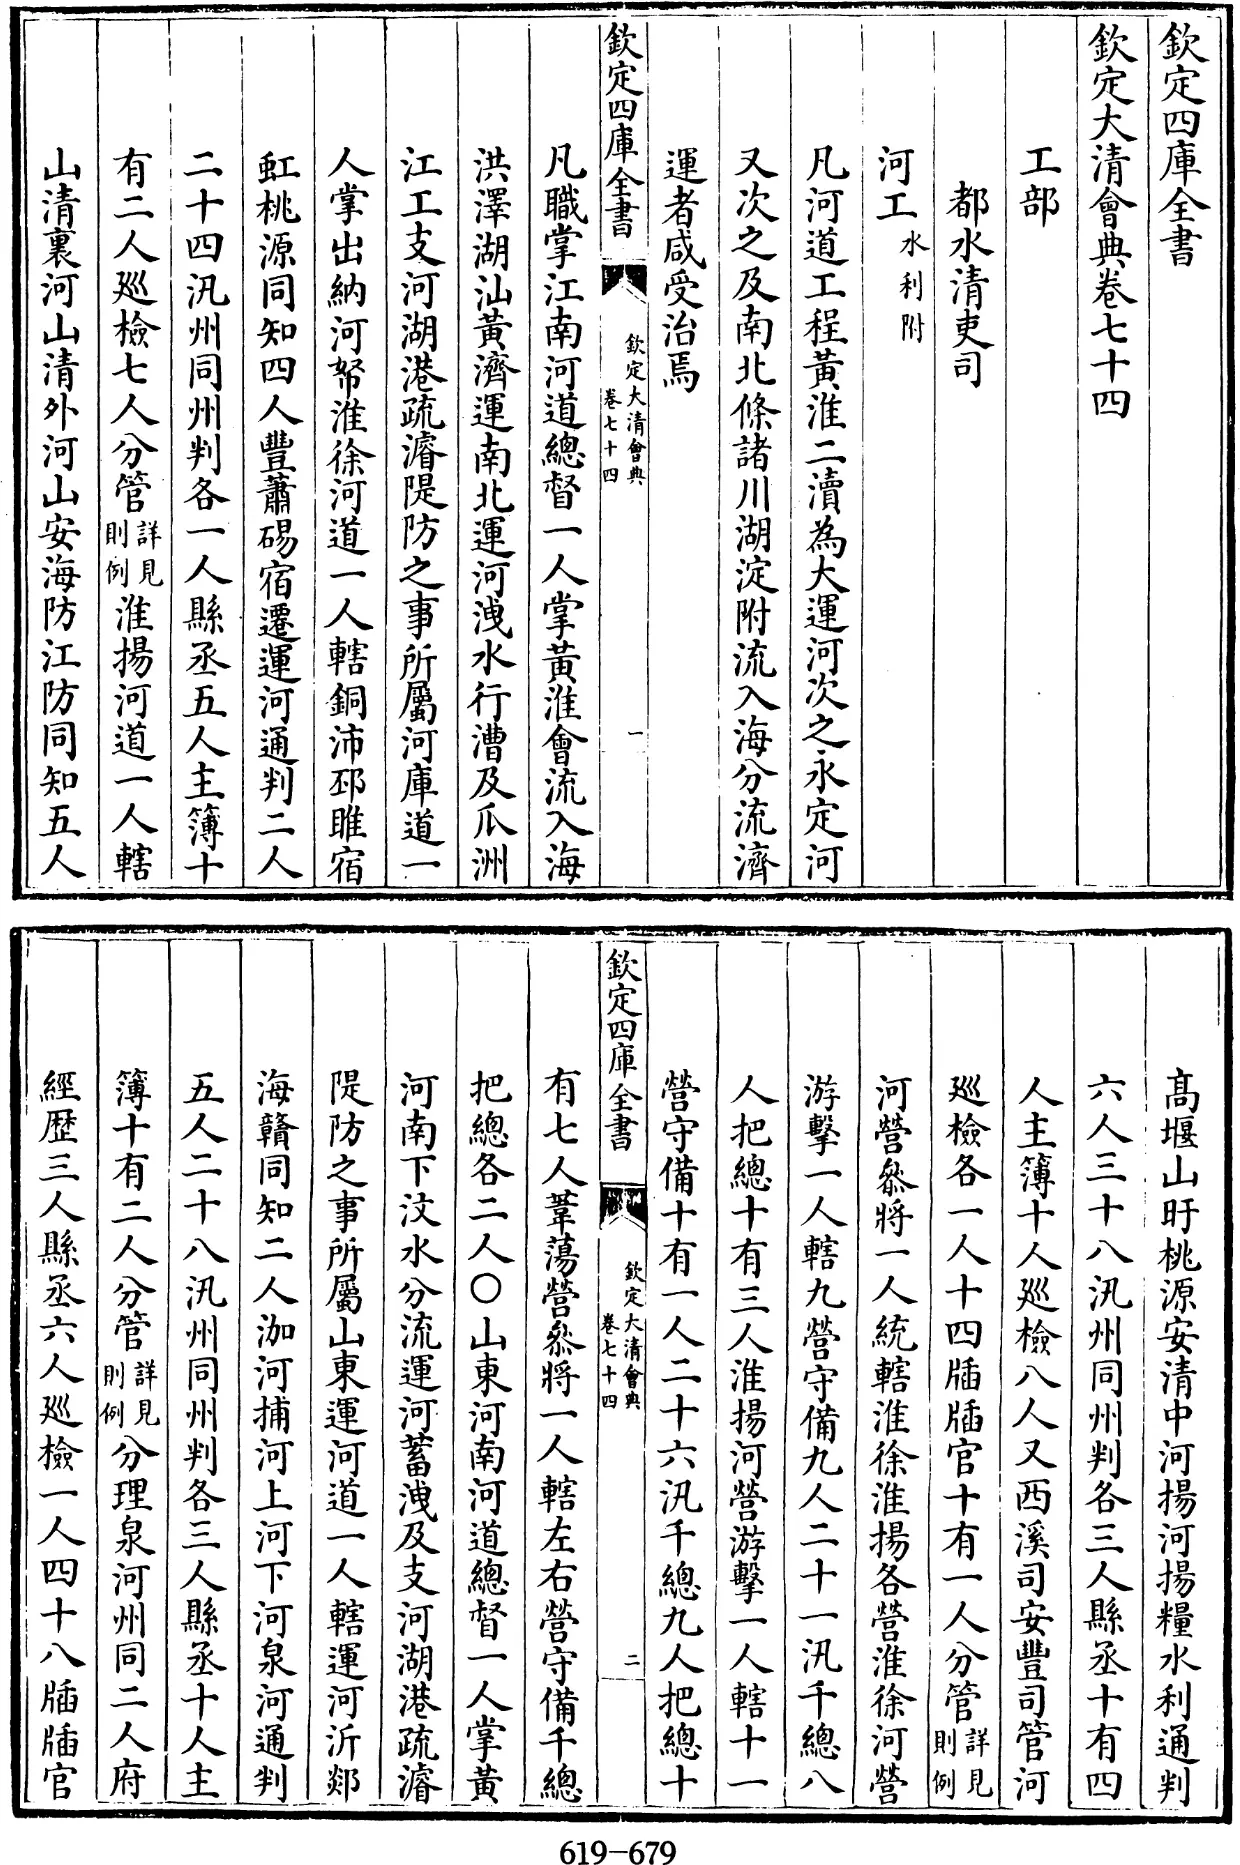 欽定四庫全書
欽定大清會典卷七十四
工部
都水清吏司
河工水利附
凡河道工程黃淮二瀆為大運河次之永定河
又次之及南北條諸川湖淀附流入海分流濟
運者咸受治焉
欽定四庫全書
欽定大清會典
卷七十四
一
凡職掌江南河道總督一人掌黃淮會流入海
洪澤湖汕黃濟運南北運河洩水行漕及瓜洲
江工支河湖港疏濬隄防之事所屬河庫道一
人掌出納河帑淮徐河道一人轄銅沛邳睢宿
虹桃源同知四人豐蕭碭宿遷運河通判二人
二十四汛州同州判各一人縣丞五人主簿十
有二人廵檢七人分管詳見則例淮揚河道一人轄
山清裏河山清外河山安海防江防同知五人
高堰山盱桃源安清中河揚河揚糧水利通判
六人三十八汛州同州判各三人縣丞十有四
人主簿十人廵檢八人又西溪司安豐司管河
廵檢各一人十四牐牐官十有一人分管詳見則例
河營叅將一人統轄淮徐淮揚各營淮徐河營
游擊一人轄九營守備九人二十一汛千總八
人把總十有三人淮揚河營游擊一人轄十一
營守備十有一人二十六汛千總九人把總十
欽定四庫全書
欽定大清會典
卷七十四
二
有七人葦蕩營叅將一人轄左右營守備千總
把總各二人○山東河南河道總督一人掌黃
河南下汶水分流運河蓄洩及支河湖港疏濬
隄防之事所屬山東運河道一人轄運河沂郯
海贛同知二人泇河捕河上河下河泉河通判
五人二十八汛州同州判各三人縣丞十人主
簿十有二人分管詳見則例分理泉河州同二人府
經歷三人縣丞六人廵檢一人四十八牐牐官
619-679